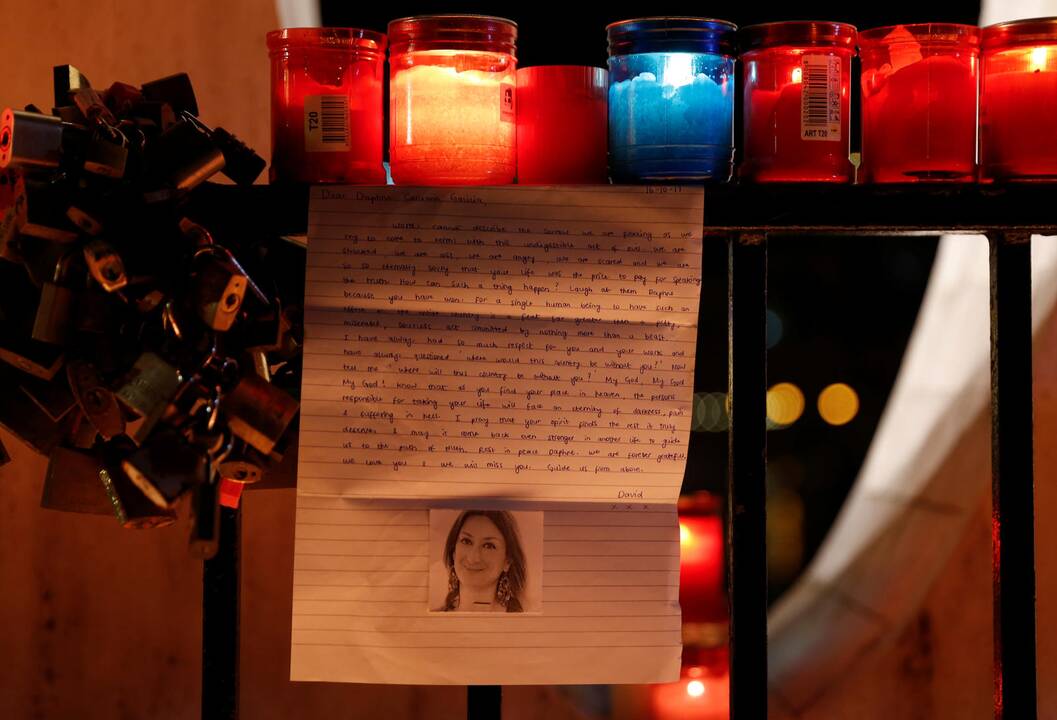 T20
ART T20
16-10-17
Dear Daphne Caruana Galizia
Words cannot describe the sorrow we are feeling as we
try to come to terms with this undigestible act of evil. We are
shocked, we are lost, we are angry, we are scared and we are
so so eternally sorry that your life was the price to pay for speaking
the truth. How can such a thing happen? Laugh at them Daphne
because you have won. For a single human being to have such an
on the entire country is a feat far greater than a petty,
miserable, act committed by nothing more than a beast.
I have always had so much respect for you and your work and
have always questioned "where would this country be without you?" Now
tell me "where will this country be without you?" My God, My God
My God! Know that as you find your place in heaven, the persons
responsible for taking your life will face an eternity of darkness, pain
& suffering in hell. I pray that your spirit finds the rest it truly
deserves & may it come back even stronger in another life to guide
us to the path of truth. Rest in peace Daphne. We are forever grateful,
we love you & we will miss you. Guide us from above.
David
x x x